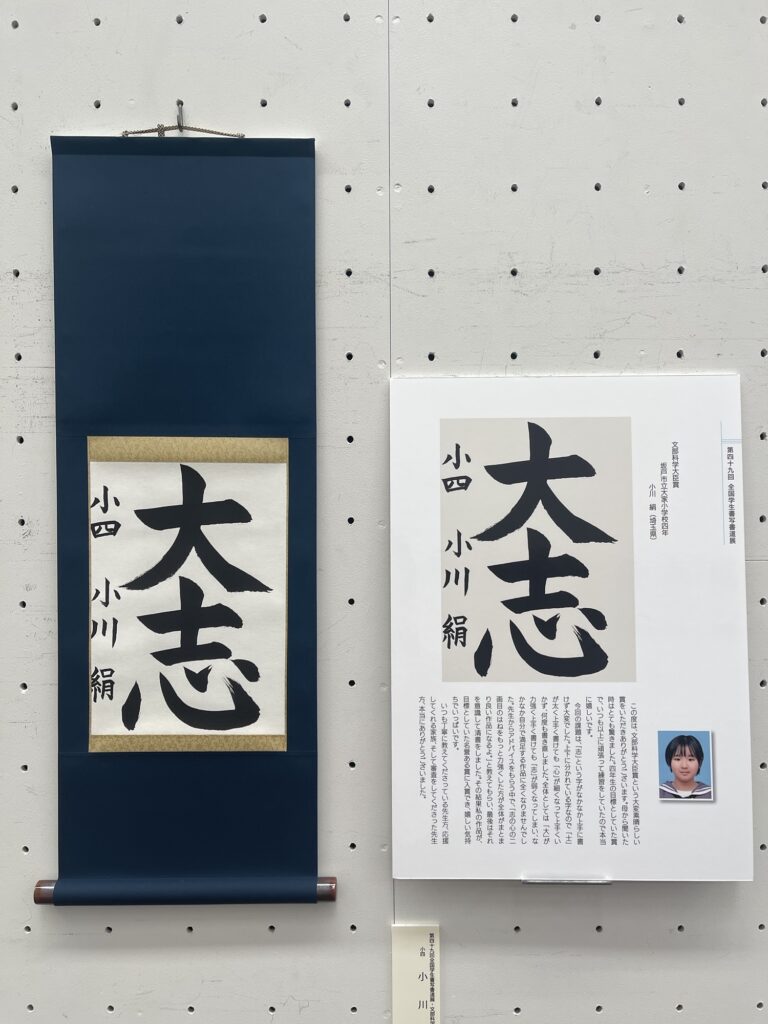 大志
小四 小川 絹
第四十九回 全国学生書写書道展
文部科学大臣賞
坂戸市立大家小学校四年
小川 絹(埼玉県)
大志
小四 小川 絹
この度は、文部科学大臣賞という大変素晴らしい
賞をいただきありがとうございます。母から聞いた
時はとても驚きました。四年生の目標としていた賞
で、いつも以上に頑張って練習をしていたので本当
に嬉しいです。
今回の課題は、「志」という字がなかなか上手に書
けず大変でした。上下に分かれている字なので「士」
が太く上手く書けても「心」が細くなって上手くい
かず、何度も書き直しました。全体としては「大」が
力強く上手く書けても「志」が弱くなってしまい、な
かなか自分で満足する作品に全くなりませんでし
た。先生からアドバイスをもらう中で、「志の心の二
画目のはねをもっと力強くした方が全体がまとま
り良い作品になるよ。」と教えてもらい、最後はそれ
を意識して清書をしました。その結果私の作品が、
目標としていた名誉ある賞に入賞でき、嬉しい気持
ちでいっぱいです。
いつも丁寧に教えてくださっている先生方、応援
してくれる家族、そして審査をしてくださった先生
方、本当にありがとうございました。
第四十九回全国学生書写書道展・文部科
小四 小川